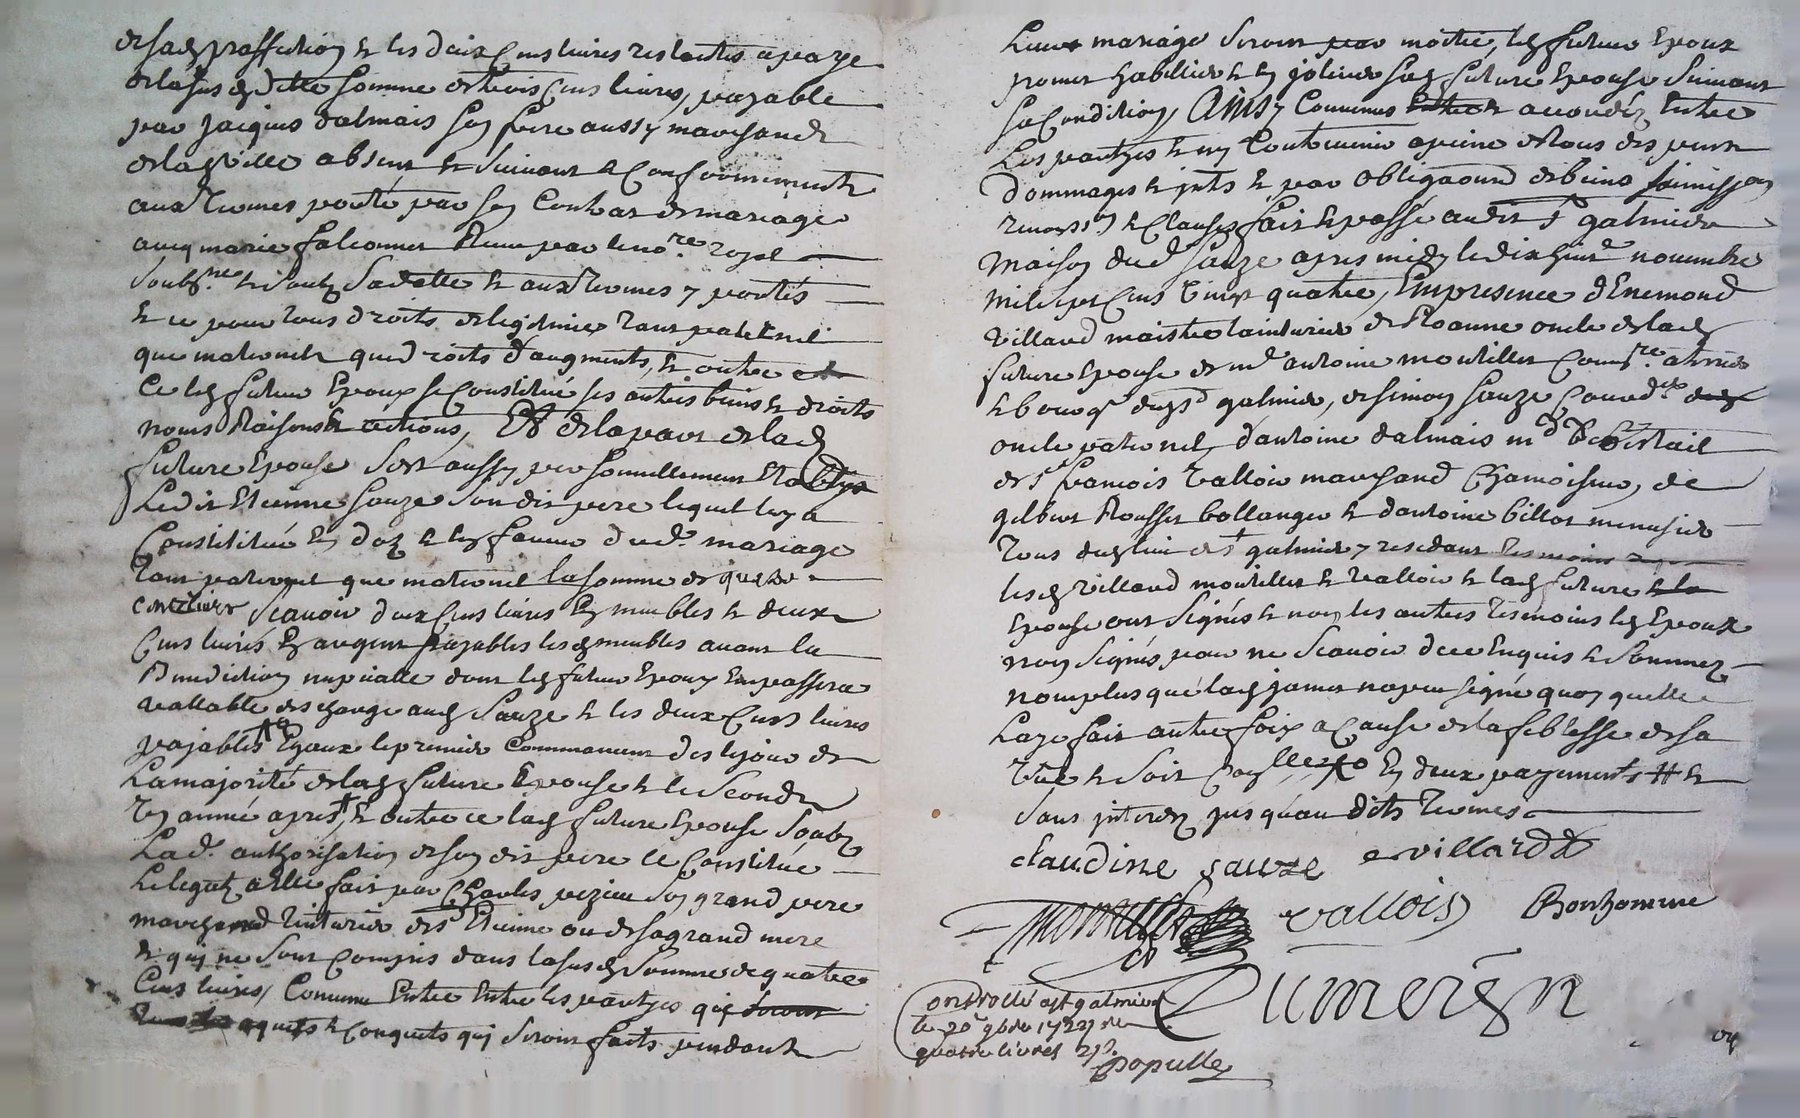 de sad profession & les deux Cens livres restantes a paye
de la sus d dette somme de trois Cens livres, payable
par jacques dalmais son frere aussy marchand
de lad ville absent & suivant & Conformement
aux termes porté par son Contrat de mariage
avec marie falconnet Receu par le no.re royal
soubs.né & soubz sad dette & aux termes y portés
& ce pour tous droits de legitime tant paternel
que maternels que droits d'augments, & outre
Ce led futur Epoux se Constitue ses autres biens & droits
noms Raisons & actions, Et de la part de lad
future Epouse s'est aussy personnellement Etably
Ledit Etienne sauze son dit pere lequel luy a
Constitué En doz & En faveur dud. mariage
tant paternel que maternel la somme de quatre
cent livres scavoir deux Cens livres En meubles & deux
Cens livres En argent payables lesd meubles avant la
Benediction nuptialle dont led futur Epoux En passera
vallable descharge aud Sauze & les deux Cens livres
payables Egaux le premier Commanceant des le jour de
La majorité de lad future Epouse & le second
En année apres, & outre ce lad future Epouse soubz
Lad. authorisation de son dit pere se Constitue
Le legat a Elle fait par Charles vezian son grand pere
marchand tinturier de St Etienne ou de sa grand mere
& qui ne sont Compris dans la sus d Somme de quatre
Cens livres, Convenu Entre Entre les partyes que
aquets & Conquets qui seront faits pendant
Leur mariage seront par moitié, led futur Epoux
promet habillier & En joliver sad future Epouse suivant
sa Condition, Ainsy Convenu & accordéz Entre
Les partyes & ny Contrevenir a peine de tous despens
Dommages & jnts & par obligaons de biens soumissions
renons.s & Clauses fait & passé audit St galmier
Maison dud Sauze apres midy le dix huit novembre
mil sept Cens vingt quatre, En presence d'Enemond
villard maistre tainturier de Roanne oncle de lad
future Epouse de m.e antoine moutiller
& bourg.s dud St galmier, de simon sauze
oncle paternel, d'antoine dalmais m.d
de s.r francois valloir marchand Chamoiseur, de
gilbert Rousset bollanger & d'antoine billot menusier
tous dud lieu de St galmier y residant
lesd villard moutiller & valloir & lad future
Epouse ont signés & non les autres tesmoins led Epoux
non signés pour ne scavoir de ce Enquis & sommez
nomplus que lad jamet na peu signé quoy quelle
Laye fait autre fois a Cause de la feblesse de sa
vüe & soit Con.llé En deux payements # &
sans jnterez jusqu'au dits termes
claudine sauze evillard
moutiller vallois Bonhomme
Cumergn
Controllé a st galmier
le 20e 9bre 1724 re
quatre livres
populle